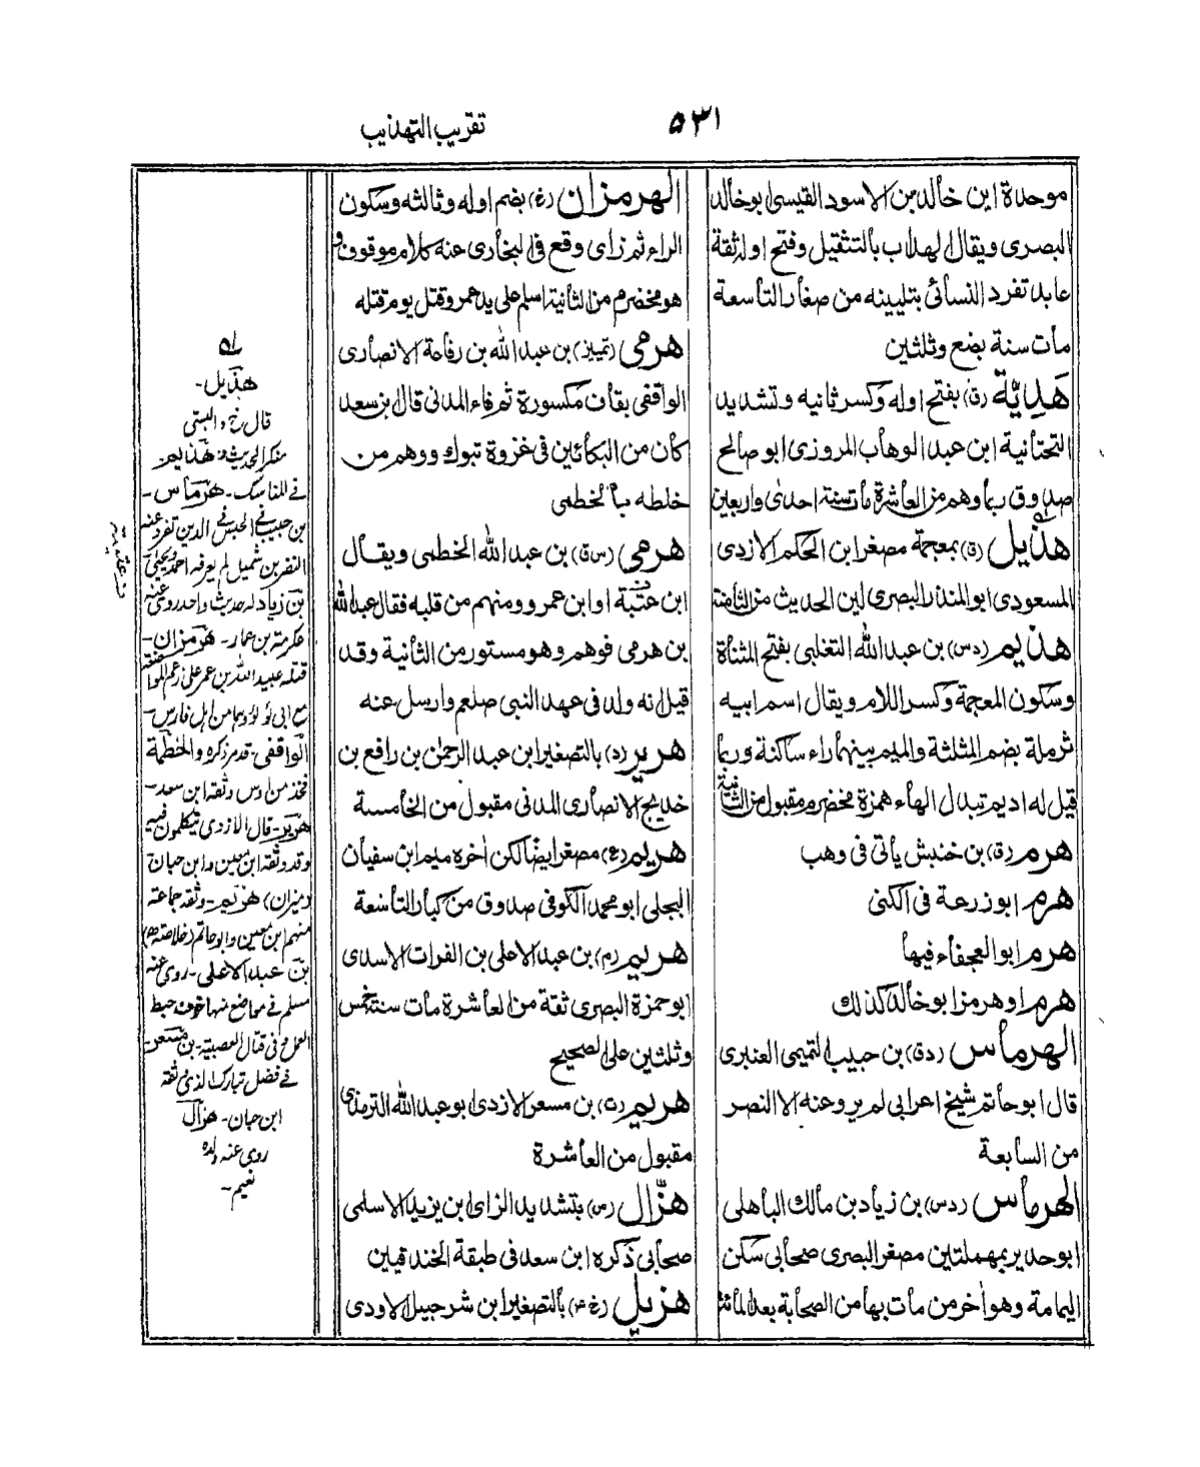 ٥٣١
تقريب التهذيب
موحدة ابن خالد بن الاسود القيسى ابو خالد
البصرى ويقال الهداب بالتثقيل وفتح اوله ثقة
عابد تفرد النسائى بتليينه من صغار التاسعة
مات سنة بضع وثلثين
هَدِيَّة (ق) بفتح اوله وكسر ثانيه وتشديد
التحتانية ابن عبد الوهاب المروزى ابو صالح
صدوق ربما وهم من العاشرة مات سنة احدى واربعين
هذيل (ق) بمعجمة مصغر ابن الحكم الازدى
المسعودى ابو المنذر البصرى لين الحديث من الثامنة
هذيم (دس) بن عبد الله التغلبى بفتح المثناة
وسكون المعجمة وكسر اللام ويقال اسم ابيه
ثرملة بضم المثلثة والميم بينهما راء ساكنة وربما
قيل له اديم تبدل الهاء همزة مخضرم مقبول من الثانية
هرم (ق) بن خنبش يأتى فى وهب
هرم ابو زرعة فى الكنى
هرم ابو العجفاء فيها
هرم او هرمز ابو خالد كذلك
الهرماس (دق) بن حبيب التميمى العنبرى
قال ابو حاتم شيخ اعرابى لم يرو عنه الا النضر
من السابعة
الهرماس (دس) بن زياد بن مالك الباهلى
ابو حدير بمهملتين مصغر البصرى صحابى سكن
اليمامة وهو اخر من مات بها من الصحابة بعد المائة
الهرمزان (خ) بضم اوله وثالثه وسكون
الراء ثم زاى وقع فى البخارى عنه كلام موقوف و
هو مخضرم من الثانية اسلم على يد عمر وقتل يوم قتله
هرمى (تمييز) بن عبد الله بن رفاعة الانصارى
الواقفى بقاف مكسورة ثم فاء المدنى قال ابن سعد
كان من البكائين فى غزوة تبوك ووهم من
خلطه بالخطمى
هرمى (س ق) بن عبد الله الخطمى ويقال
ابن عتبة او ابن عمرو ومنهم من قلبه فقال عبد الله
بن هرمى فوهم وهو مستور من الثانية وقد
قيل انه ولد فى عهد النبى صلعم وارسل عنه
هرير (د) بالتصغير ابن عبد الرحمن بن رافع بن
خديج الانصارى المدنى مقبول من الخامسة
هريم (ع) مصغر ايضا لكن اخره ميم ابن سفيان
البجلى ابو محمد الكوفى صدوق من كبار التاسعة
هريم (م) بن عبد الاعلى بن الفرات الاسدى
ابو حمزة البصرى ثقة من العاشرة مات سنة خمس
وثلثين على الصحيح
هريم (ت) بن مسعر الازدى ابو عبد الله الترمذى
مقبول من العاشرة
هزّال (س) بتشديد الزاى ابن يزيد الاسلمى
صحابى ذكره ابن سعد فى طبقة الخندقيين
هزيل (خ ٤) بالتصغير ابن شرحبيل الاودى
هذيل-
قال خ والبستى
منكر الحديث؛ هذايم
فى المناسك- هرماس-
بن حبيب فى الحبس فى الدين تفرد عنه
النضر بن شميل لم يعرفه احمد ويحيى
بن زياد له حديث واحد روى عنه
عكرمة بن عمار- هرمزان-
قتله عبيد الله بن عمر على زعم
مع ابى لؤلؤ وهما من اهل فارس-
الواقفى- قد مر ذكره والخطمة
فخذ من اوس وثقه ابن سعد-
هرير- قال الازدى يتكلمون فيه
وقد وثقه ابن معين وابن حبان
(ميزان) هريم- وثقه جماعة
منهم ابن معين وابو حاتم (خلاصة)
بن عبد الاعلى- روى عنه
مسلم فى مواضع منها خوف حبط
العمل وفى قتال العصبية- بن مسعر-
فى فضل تبارك الذى وثقه
ابن حبان- هزال
روى عنه ولده
نعيم-